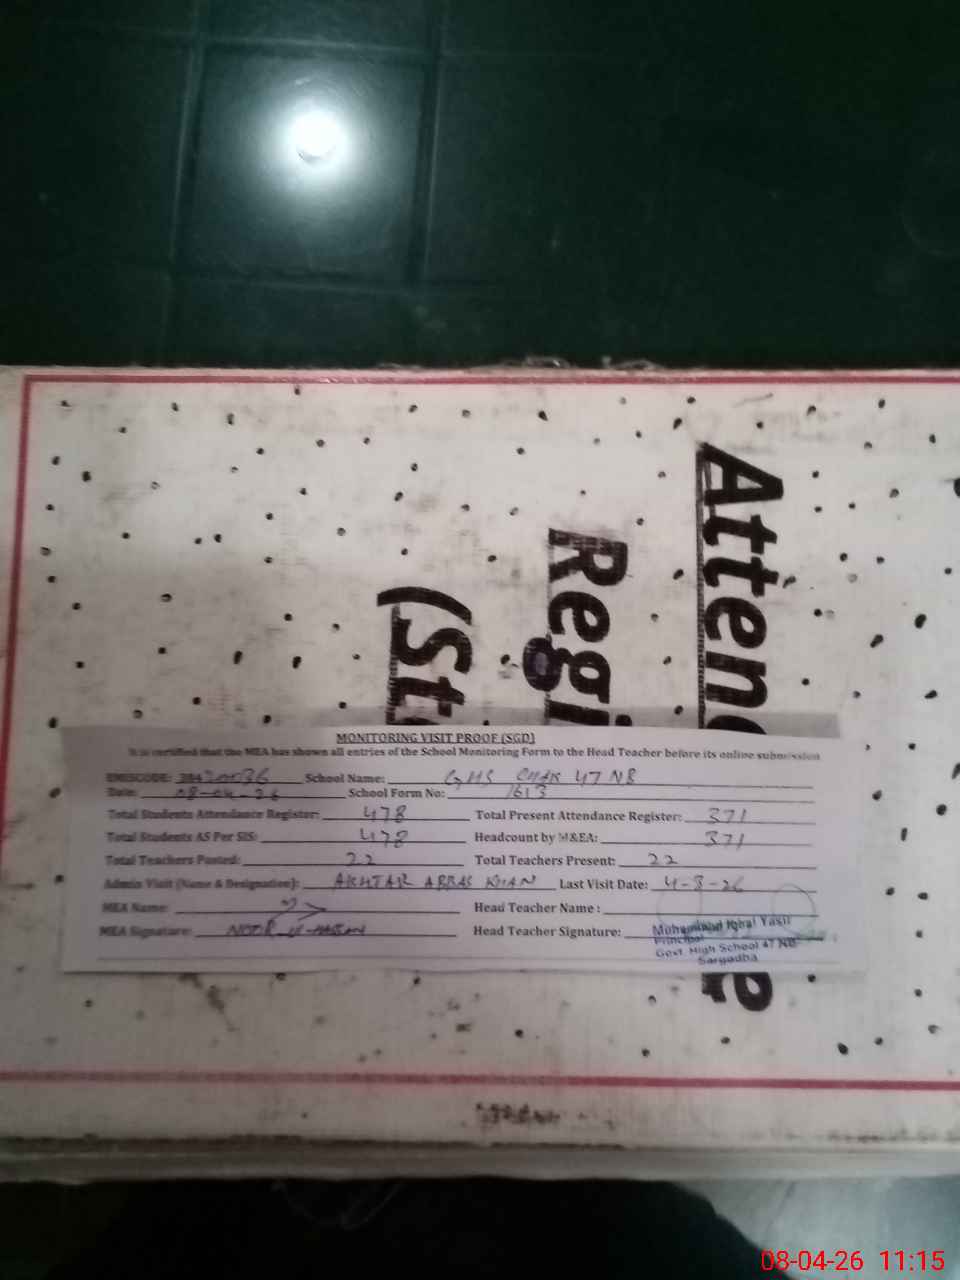 Atten
Regi
(St
MONITORING VISIT PROOF (SGD)
It is certified that the MEA has shown all entries of the School Monitoring Form to the Head Teacher before its online submission
EMISCODE: School Name: GHS CHAK 47 NB
Date: 08-04-26 School Form No: 1613
Total Students Attendance Register: 478 Total Present Attendance Register: 371
Total Students AS Per SIS: 478 Headcount by M&EA: 371
Total Teachers Posted: 22 Total Teachers Present: 22
Admin Visit (Name & Designation): AKHTAR ABBAS KHAN Last Visit Date: 4-3-26
MEA Name: Head Teacher Name :
MEA Signature: NOOR-UL-HASSAN Head Teacher Signature:
Muhammad Iqbal Yasir
Principal
Govt. High School 47 NB
Sargodha
08-04-26 11:15